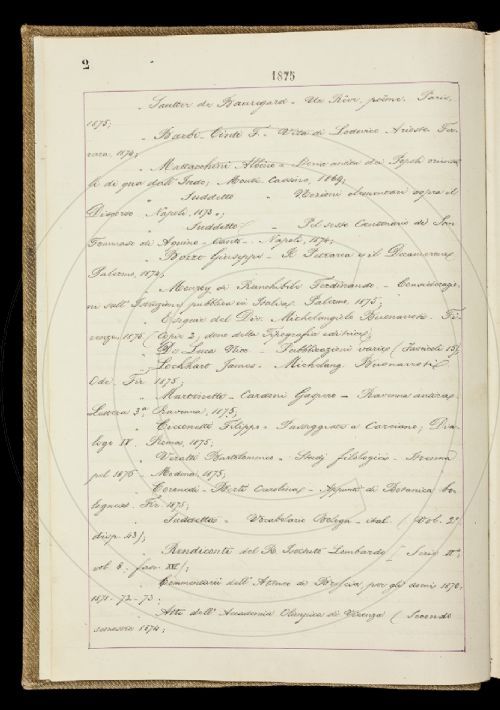 2
1875
" Sautter de Beauregard - Un Rêve, poême. Paris,
1875;
" Barbi Cinti F. - Vita di Lodovico Ariosto Fer-
rara, 1874;
" Mattacheri Albino - Storia antica dei Popoli orienta-
li di qua dall' Indo; Monte Cassino, 1869;
" Suddetto - Nozioni elementari sopra il
Discorso. Napoli, 1873.;
" Suddetto - Pel sesto Centenario di San
Tommaso di Aquino - Canto - Napoli, 1874;
" Bozzo Giuseppe - Il Petrarca e il Decamerone
Palermo, 1874;
" Ferdinando - Considerazio-
ni sull' Istruzione pubblica in Italia. Palermo, 1875;
" Esequie del Div. Michelangelo Buonaroti - Fi-
renze 1875 (Copie 2, dono della Tipografia editrice;
" De Luca Nico - Pubblicazioni varie (Fascicoli 15);
" Lockhart James - Michelang. Buonarroti
Ode. Fir. 1875;
" Martinetti - Cardoni Gaspare - Ravenna antica
Lettera 3ª Ravenna, 1875;
" Cicconetti Filippo - Passeggiate a Corviano; Dia-
logo IV. Roma, 1875;
" Veratti Bartolomeo - Studj filologici - Strenna
pel 1875 - Modena, 1875;
" Coronedi - Berti Carolina - Appunti di Botanica bo-
lognese. Fir. 1875;
" Suddetta - Vocabolario Bologn - ital. (Vol. 2º
disp. 43);
" Rendiconti del R. Istituto Lombardo (Serie IIª,
vol. 8. fasc. XXI;
" Commentarii dell' Ateneo di Brescia per gli anni 1870,
1871 - 72 - 73;
" Atti dell' Accademia Olimpica di Vicenza (Secondo
semestre 1874;